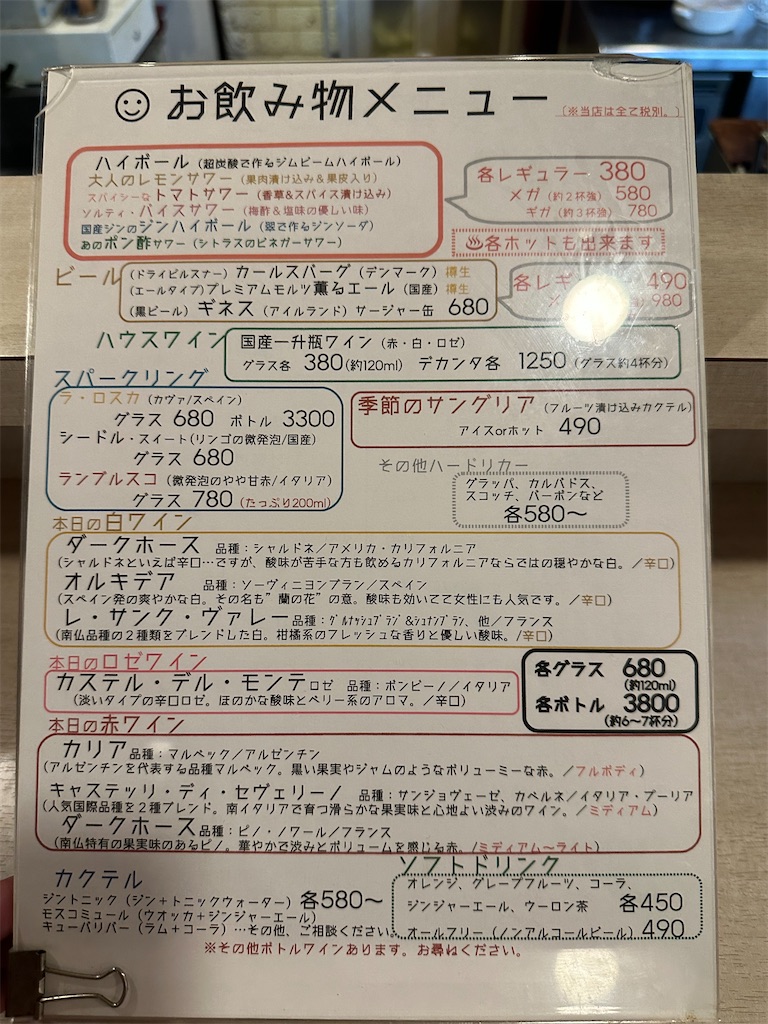 ☺お飲み物メニュー
〔※当店は全て税別。〕
ハイボール (超炭酸で作るジムビームハイボール)
大人のレモンサワー (果肉漬け込み＆果皮入り)
スパイシーなトマトサワー (香草＆スパイス漬け込み)
ソルティ・バイスサワー (梅酢＆塩味の優しい味)
国産ジンのジンハイボール (翠で作るジンソーダ)
あのポン酢サワー (シトラスのビネガーサワー)
各レギュラー 380
メガ (約２杯強) 580
ギガ (約３杯強) 780
♨各ホットも出来ます
ビール
(ドライピルスナー) カールスバーグ (デンマーク) 樽生
(エールタイプ)プレミアムモルツ薫るエール (国産) 樽生
(黒ビール) ギネス (アイルランド) サージャー缶 680
各レギ 490
980
ハウスワイン
国産一升瓶ワイン (赤・白・ロゼ)
グラス各 380(約120ml) デカンタ各 1250 (グラス約4杯分)
スパークリング
ラ・ロスカ (カヴァ/スペイン)
グラス 680 ボトル 3300
シードル・スイート(リンゴの微発泡/国産)
グラス 680
ランブルスコ (微発泡のやや甘赤/イタリア)
グラス 780 (たっぷり200ml)
季節のサングリア (フルーツ漬け込みカクテル)
アイスorホット 490
その他ハードリカー
グラッパ、カルバドス、
スコッチ、バーボンなど
各580〜
本日の白ワイン
ダークホース 品種：シャルドネ／アメリカ・カリフォルニア
(シャルドネといえば辛口…ですが、酸味が苦手な方も飲めるカリフォルニアならではの穏やかな白。／辛口)
オルキデア 品種：ソーヴィニヨンブラン／スペイン
(スペイン発の爽やかな白。その名も”蘭の花”の意。酸味も効いてて女性にも人気です。／辛口)
レ・サンク・ヴァレー品種：ｸﾞﾙﾅｯｼｭﾌﾞﾗﾝ＆ｼｭﾅﾝﾌﾞﾗﾝ、他／フランス
(南仏品種の２種類をブレンドした白。柑橘系のフレッシュな香りと優しい酸味。/辛口)
本日のロゼワイン
カステル・デル・モンテロゼ 品種：ボンビーノ／イタリア
(淡いタイプの辛口ロゼ。ほのかな酸味とベリー系のアロマ。／辛口)
各グラス 680
(約120ml)
各ボトル 3800
(約6〜7杯分)
本日の赤ワイン
カリア品種：マルベック／アルゼンチン
(アルゼンチンを代表する品種マルベック。黒い果実やジャムのようなボリューミーな赤。／フルボディ)
キャステッリ・ディ・セヴェリーノ 品種：サンジョヴェーゼ、カベルネ／イタリア・プーリア
(人気国際品種を２種ブレンド。南イタリアで育つ滑らかな果実味と心地よい渋みのワイン。／ミディアム)
ダークホース品種：ピノ・ノワール／フランス
(南仏特有の果実味のあるピノ。華やかで渋みとボリュームを感じる赤。/ミディアム〜ライト)
カクテル
ジントニック (ジン＋トニックウォーター) 各580〜
モスコミュール (ウオッカ＋ジンジャーエール)
キューバリバー (ラム＋コーラ) …その他、ご相談ください。
ソフトドリンク
オレンジ、グレープフルーツ、コーラ、
ジンジャーエール、ウーロン茶 各450
オールフリー (ノンアルコールビール) 490
※その他ボトルワインあります。お尋ねください。